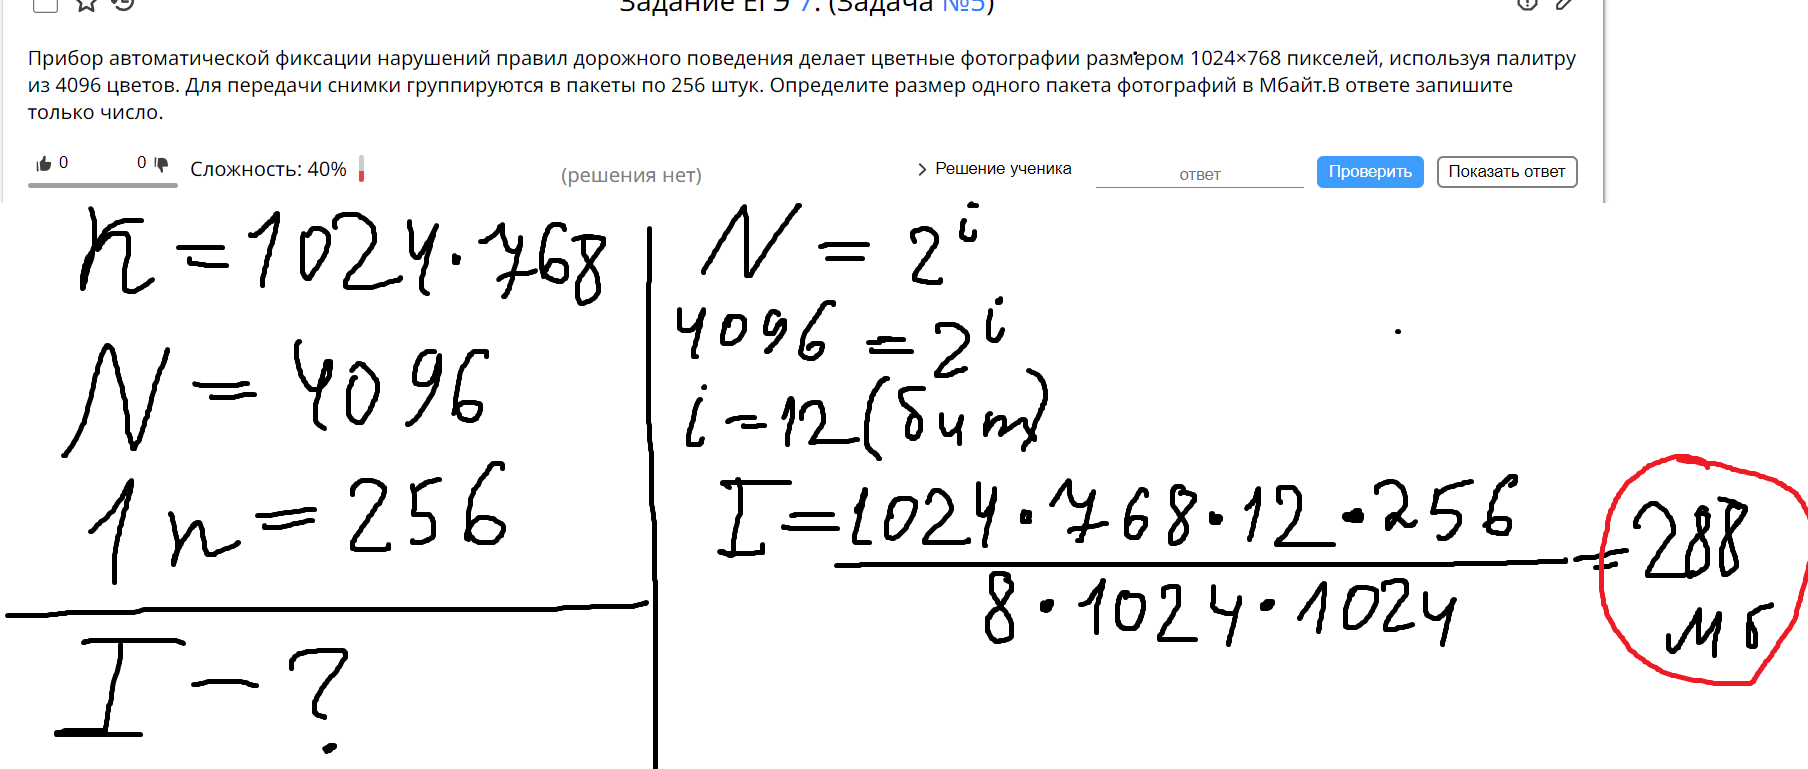 Задание ЕГЭ 7. (Задача №5)
Прибор автоматической фиксации нарушений правил дорожного поведения делает цветные фотографии размером 1024×768 пикселей, используя палитру
из 4096 цветов. Для передачи снимки группируются в пакеты по 256 штук. Определите размер одного пакета фотографий в Мбайт.В ответе запишите
только число.
0 0 Сложность: 40% (решения нет) Решение ученика ответ Проверить Показать ответ
K = 1024 · 768
N = 4096
1 п = 256
I - ?
N = 2^i
4096 = 2^i
i = 12 (бит)
I = 1024 · 768 · 12 · 256
8 · 1024 · 1024
= 288
Мб